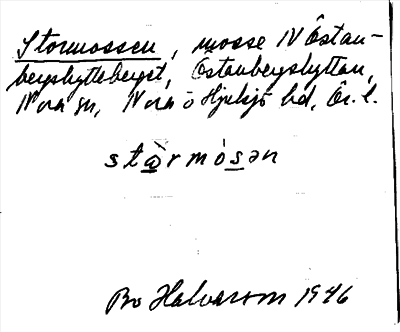 Stormossen, mosse NV Östan-
bergshytteberget, Östanbergshyttan,
Nora sn, Nora o Hjulsjö hd, Ör. l.
stɑ̀rmósən
Bo Halvarson 1946